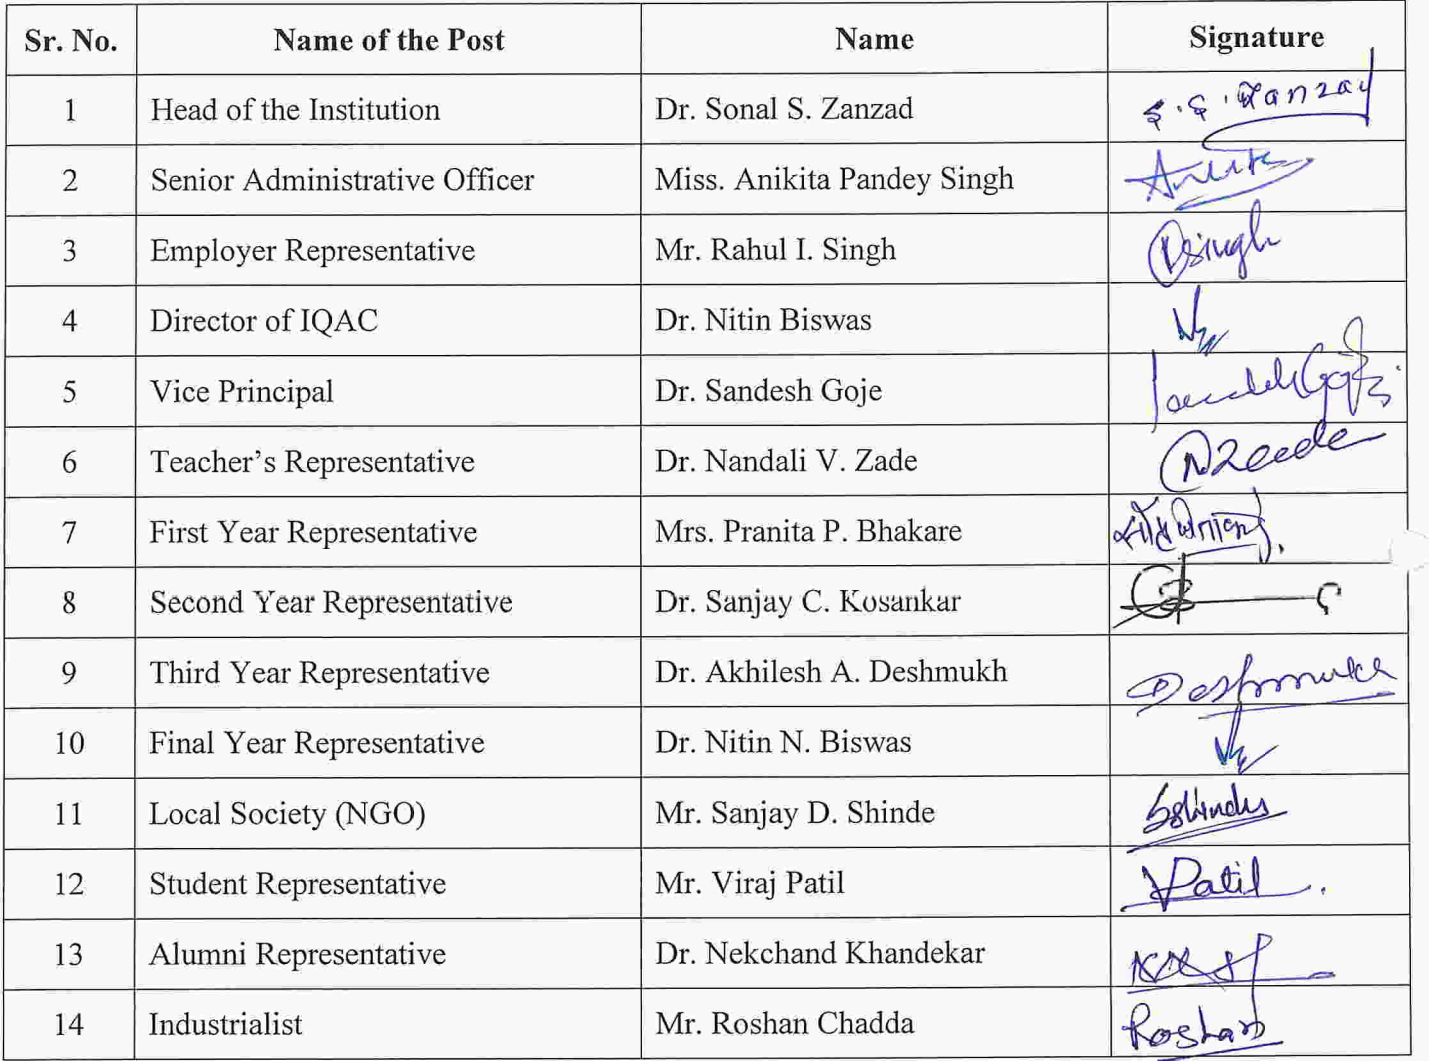 Sr. No. Name of the Post Name Signature
1 Head of the Institution Dr. Sonal S. Zanzad
2 Senior Administrative Officer Miss. Anikita Pandey Singh
3 Employer Representative Mr. Rahul I. Singh Rsingh
4 Director of IQAC Dr. Nitin Biswas
5 Vice Principal Dr. Sandesh Goje
6 Teacher's Representative Dr. Nandali V. Zade
7 First Year Representative Mrs. Pranita P. Bhakare
8 Second Year Representative Dr. Sanjay C. Kosankar
9 Third Year Representative Dr. Akhilesh A. Deshmukh Deshmukh
10 Final Year Representative Dr. Nitin N. Biswas
11 Local Society (NGO) Mr. Sanjay D. Shinde
12 Student Representative Mr. Viraj Patil VPatil
13 Alumni Representative Dr. Nekchand Khandekar
14 Industrialist Mr. Roshan Chadda Roshan